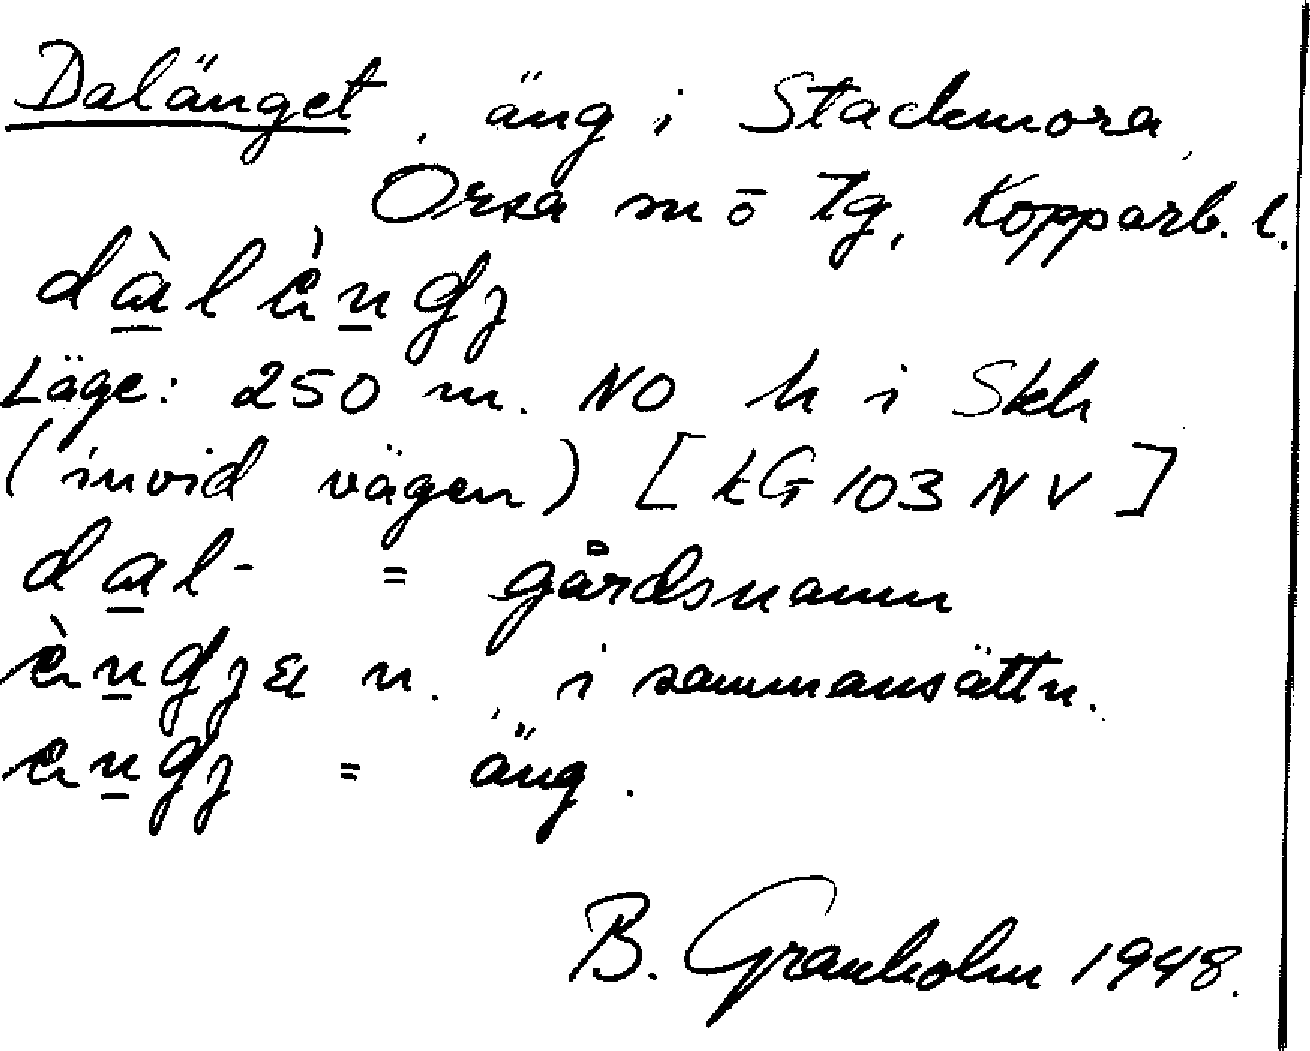 Dalänget, äng i Stackmora,
Orsa sn ö Tg, Kopparb. l.
Läge: 250 m. NO h i Skh
(invid vägen) [kG 103 NV]
dal- = gårdsnamn
n. i sammansättn.
= äng.
B. Granholm 1948.